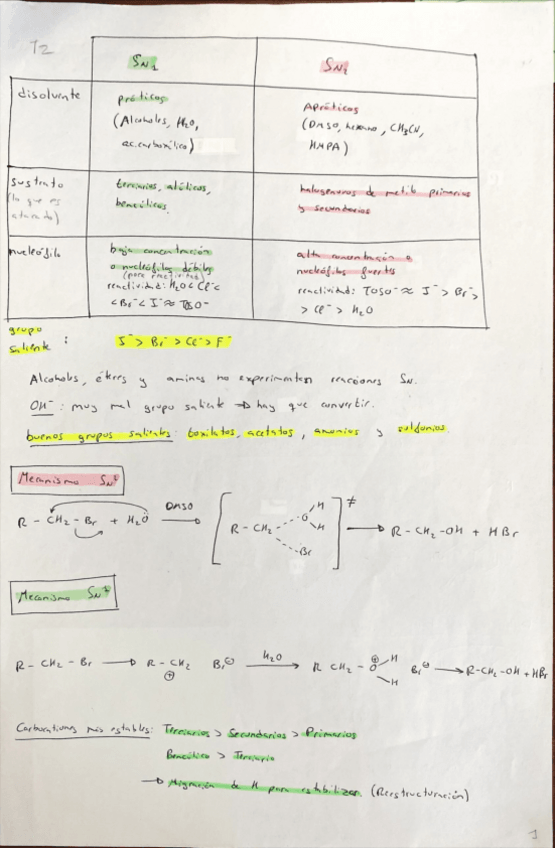 T2
SN1
SN2
disolvente
próticos
(Alcoholes, H2O,
ac. carboxílico)
Apróticos
(DMSO, hexano, CH3CN,
HMPA)
sustrato
(lo que es
atacado)
terciarios, alílicos,
bencílicos.
halogenuros de metilo primarios
y secundarios
nucleófilo
baja concentración
o nucleófilos débiles
(para reactividad)
reactividad: H2O < Cl- <
< Br- < I- ≈ TOSO-
alta concentración o
nucleófilos fuertes
reactividad: TOSO- ≈ I- > Br- >
> Cl- > H2O
grupo
saliente : I- > Br- > Cl- > F-
Alcoholes, éteres y aminas no experimentan reacciones SN.
OH- : muy mal grupo saliente → hay que convertir.
buenos grupos salientes: tosilatos, acetatos, amonios y sulfonios.
Mecanismo SN
R - CH2 - Br + H2O DMSO → [R - CH2 O H H Br]≠ → R - CH2 - OH + HBr
Mecanismo SN
R - CH2 - Br → R - CH2 ⊕ Br⊖ H2O → R CH2 - O⊕ H H Br⊖ → R - CH2 - OH + HBr
Carbocationes más estables: Terciarios > Secundarios > Primarios
Bencílico > Terciario
→ Migración de H para estabilizar. (Reestructuración)
1